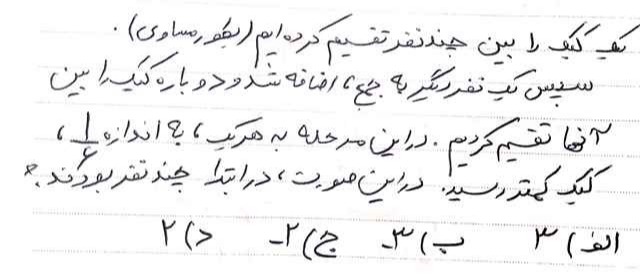 یک کیک را بین چند نفر تقسیم کرده ایم (بطور مساوی).
سپس یک نفر دیگر به جمع، اضافه شد و دوباره کیک را بین
آنها تقسیم کردیم. در این مرحله به هر یک، به اندازه 1/6،
کیک کمتر رسید. در این صورت، در ابتدا چند نفر بودند؟
الف) ۳ ب) ۳- ج) ۲- د) ۲